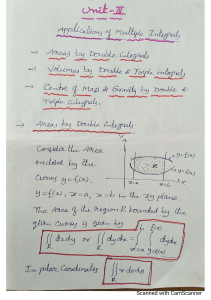 Unit-III
Application of Multiple Integrals
→ Areas by Double Integrals
→ Volumes by Double & Triple Integrals
→ Centre of Mass & Gravity by Double &
Triple Integrals.
→ Areas by Double Integrals
Consider the Area
enclosed by the
Curves y=f₁(x),
y=f₂(x), x=a, x=b in the xy plane
The Area of the region R bounded by the
given Curves is given by
∬ dxdy or ∬ dydx = ∫ ∫ dydx
R R x=a y=f₁(x)
In polar Coordinates ∬ r dr dθ
R
Scanned with CamScanner